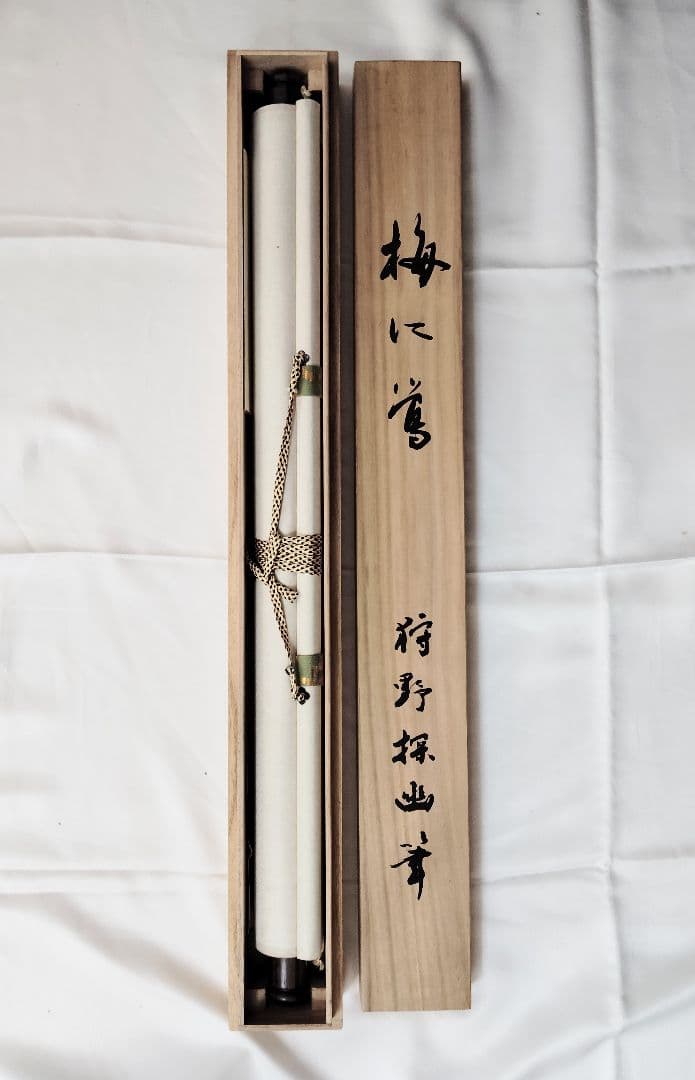 梅に鶯
狩野探幽筆